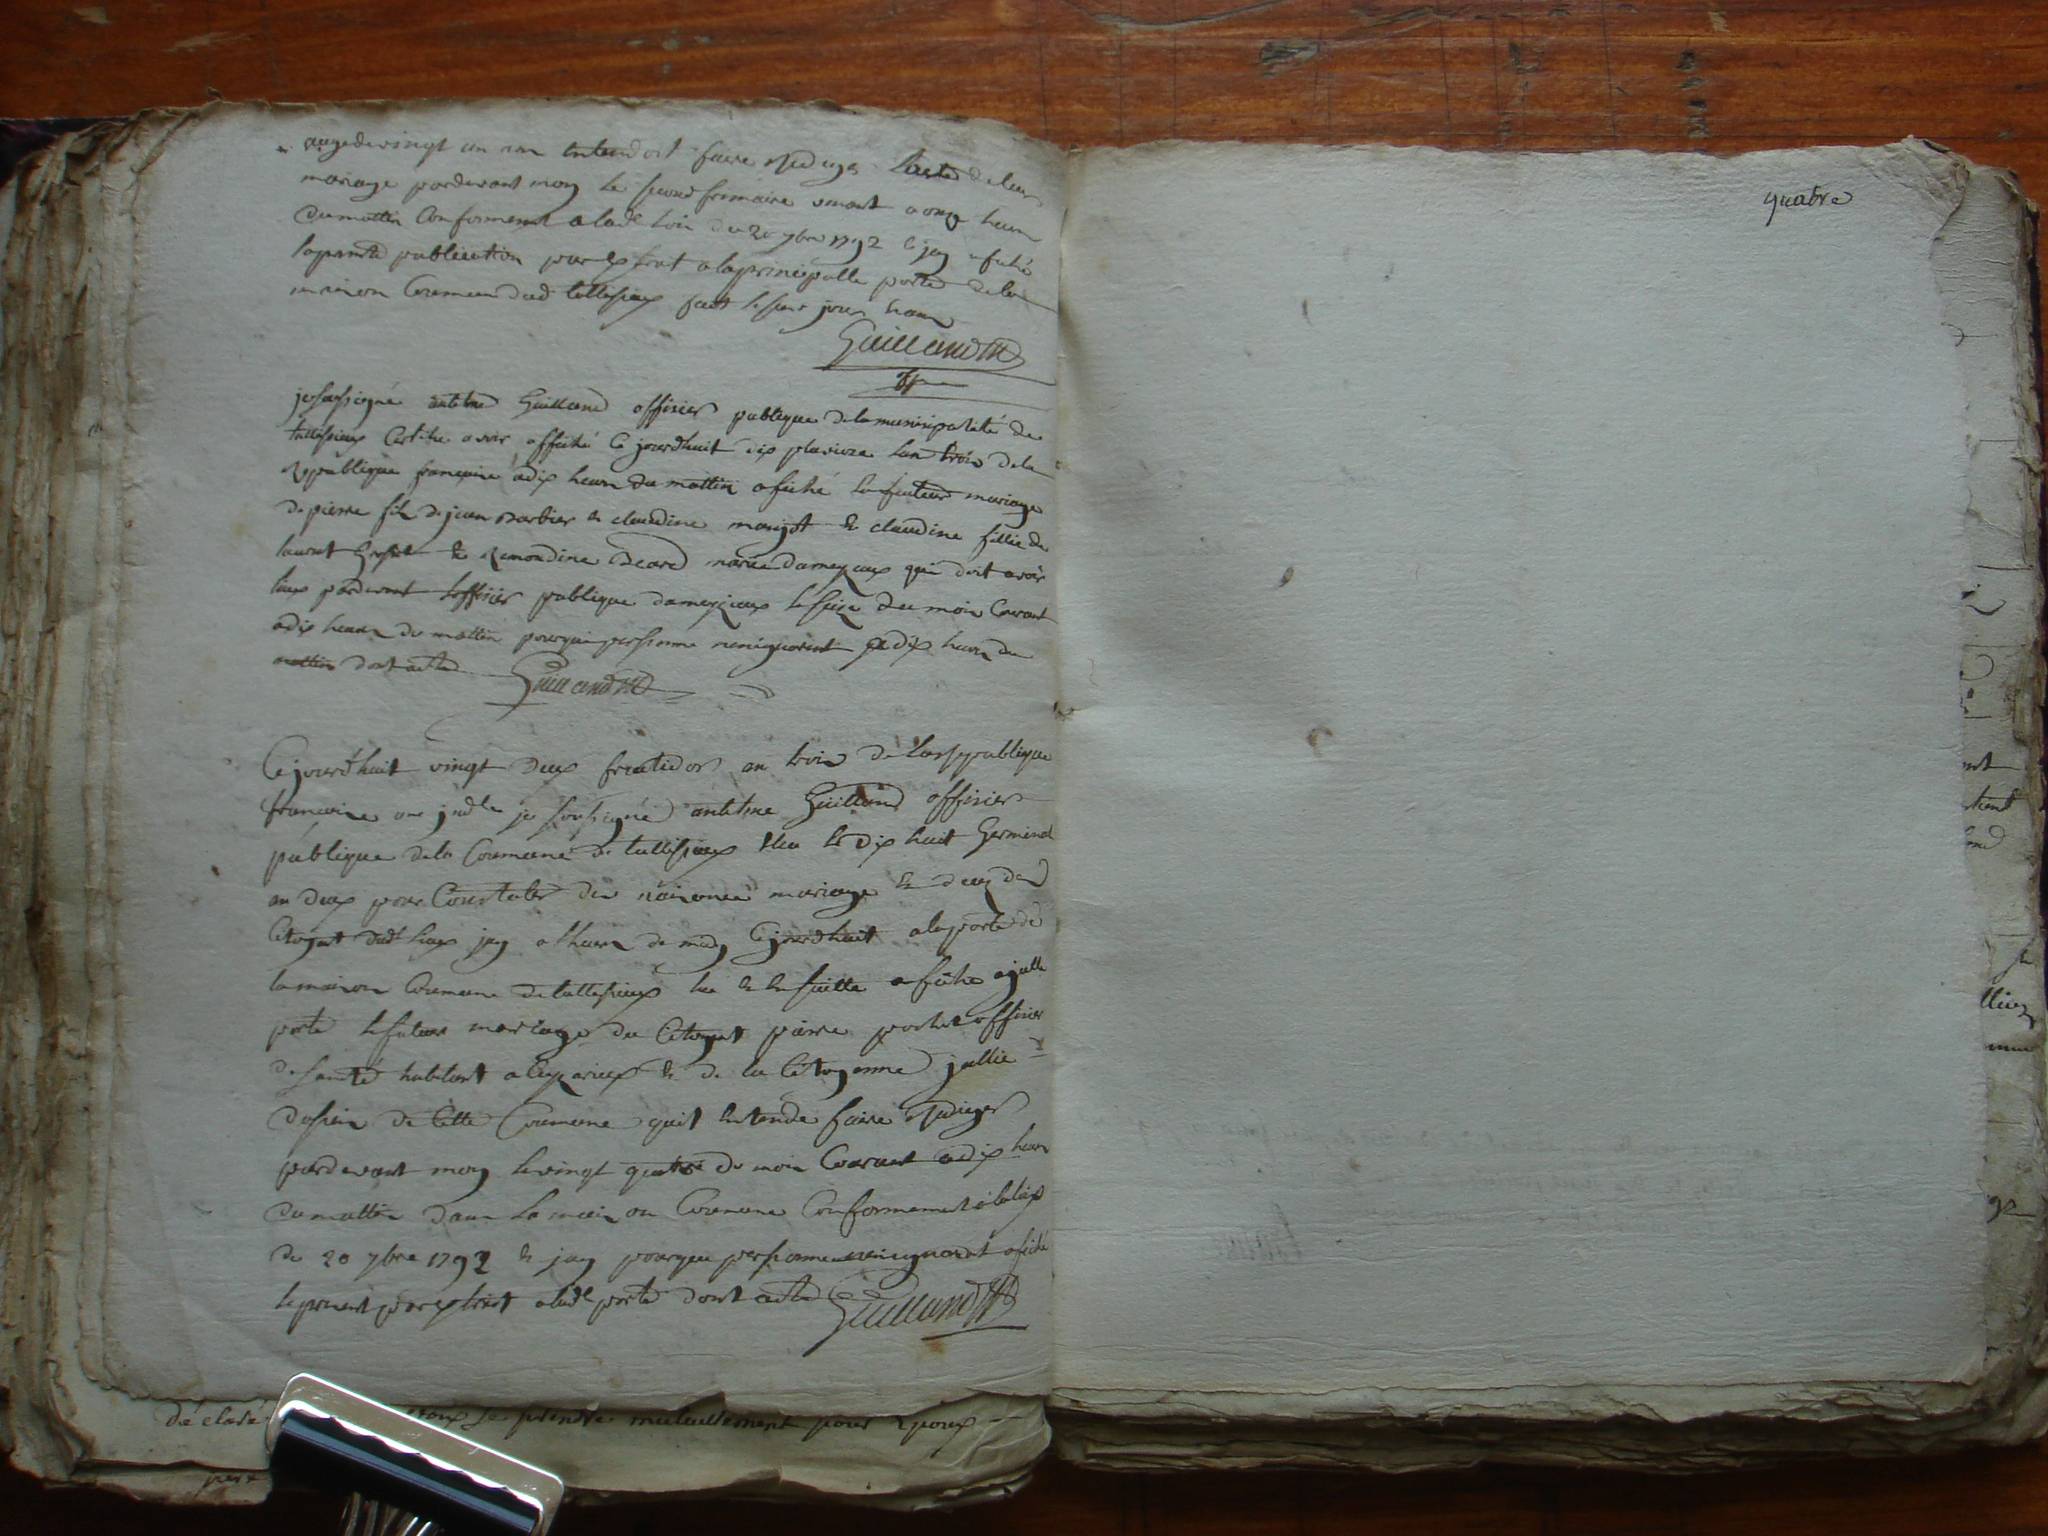 agé de vingt un an entendoit faire rediger lacte de leur
mariage pardevant moy le second frimaire venant a onze heure
du mattin Conformement a lad loix du 20 7bre 1792 & jay afiché
la presente publication par extrait a la principalle porte de la
maison Commune dud tullisieux fait les susd jour & an
Guilland
je sousigné antelme Guilland offisier publique de la municipalité de
tullisieux Certifie avoir affiché Ce jourdhuit dix pluvioze lan trois de la
republique francoise a dix heure du mattin afiché le futeur mariage
de pierre fils de jean Barbier & claudine mangot & claudine fillie de
laurent & remondine Beard dameyzieux qui doit avoir
lieux pardevant loffisier publique dameyzieux le seize du mois Courant
a dix heure du mattin pourquoi personne nenignorent a dix heure du
mattin dont acte Guilland
Ce jourdhuit vingt deux frutidor an trois de la republique
francoise une & indle je sousigné antelme Guilland offisier
publique de la Commune de tullisieux elu le dix huit Germinal
an deux pour Constater les naisance mariage & decez des
Citoyent dud lieux jay a lheure de midy Ce jourdhuit a la porte de
la maison Commune de tullisieux lu & ensuitte afiché a jcelle
porte le futeur mariage du Citoyent pierre offisier
de santé habitant a & de la Citoyenne jullie
de Cette Commune quil entende faire rediger
pardevant moy le vingt quatre du mois Courant a dix heure
du mattin dans la maison Commune Conformement a la loix
du 20 7bre 1792 & jay pourque personne nenignorent afiché
le present par extrait a lad porte dont acte Guilland
déclaré se prendre mutuellement pour epoux
quatre